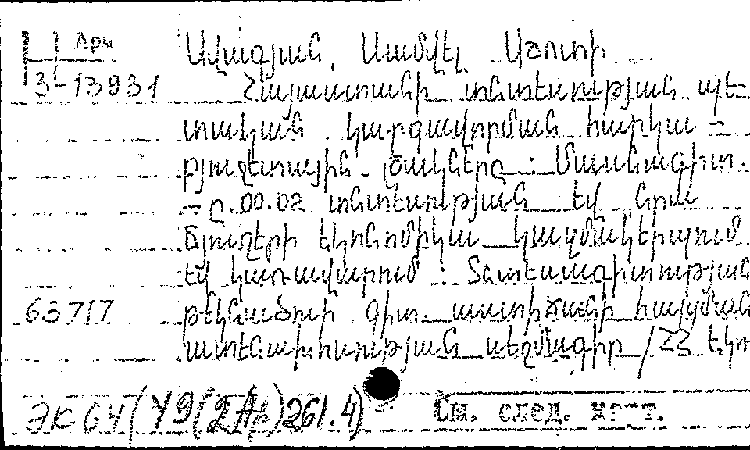 Արև
3-13931
Ավագյան, Սամվել Աշոտի
Հայաստանի տնտեսության պե-
տական կարգավորման հարկա -
բյուջետային ծակները : Մասնագիտ.
- Ը.00.02 տնտեսության եվ նրա
ճյուղերի էկոնոմիկա կազմակերպում
եվ կառավարում : Տնտեսագիտության
63717 թեկնածուի գիտ. աստիճանի հայցման
ատենախոսության սեղմագիր / ՀՀ էկո
ЭК 64 (У9(2Ар)261.4)
См. след. карт.